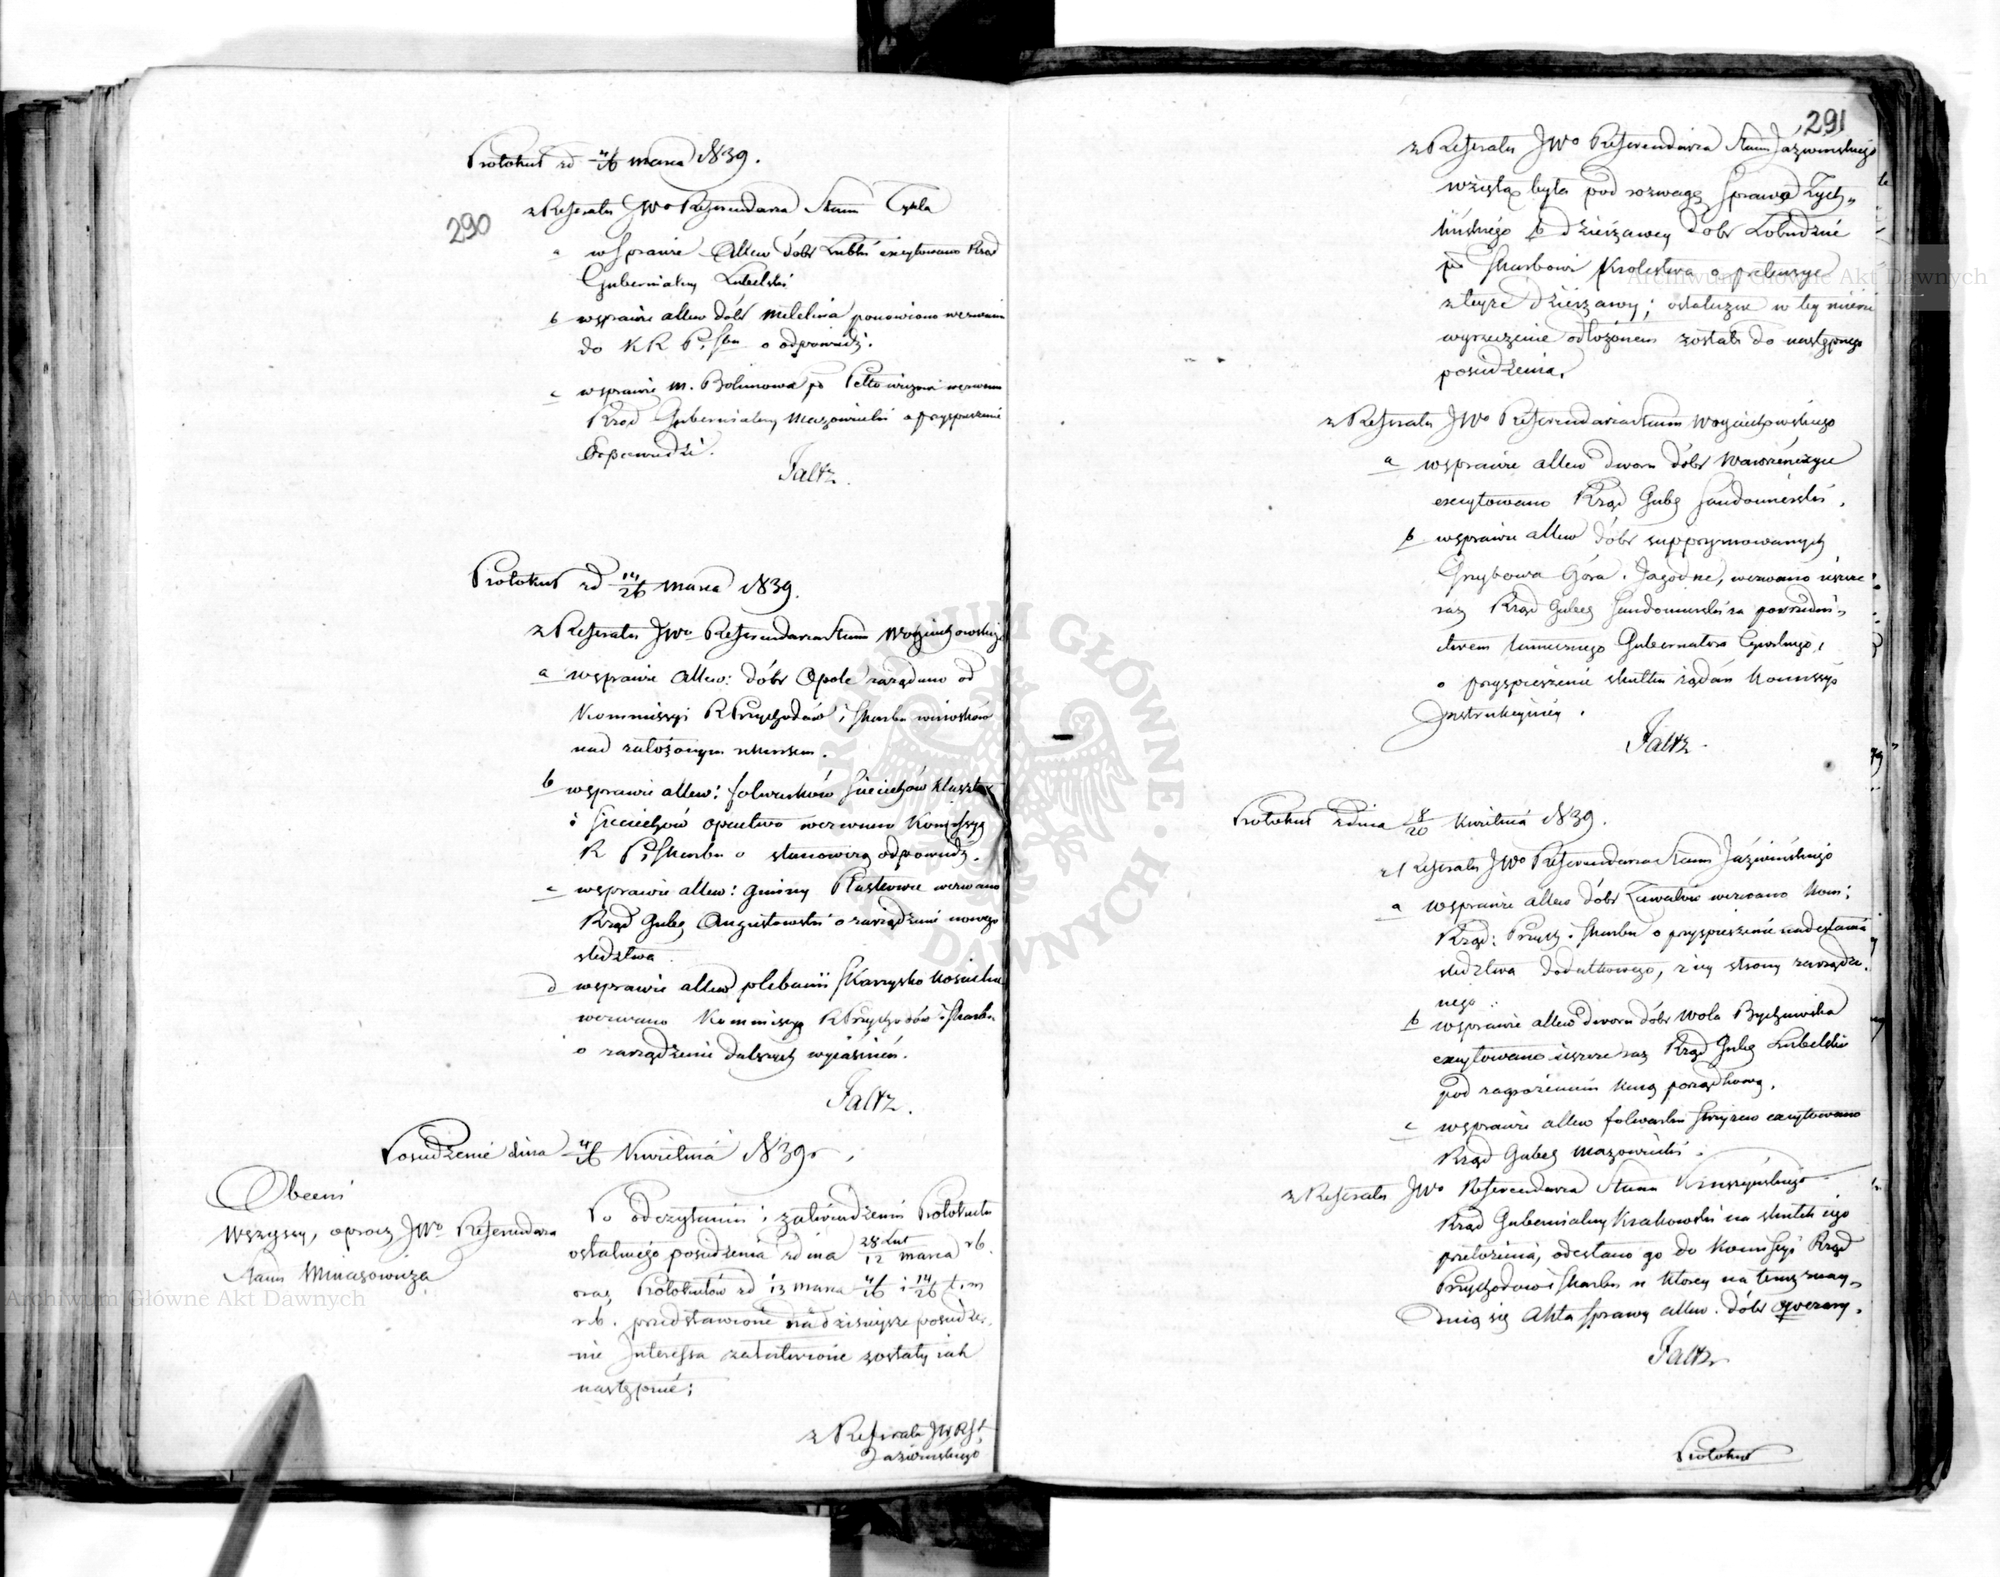 290
Protokuł zd 4/16 marca 1839.
z Referatu JWo Referendarza Stanu Cykla
a w sprawie allew dóbr Lubki excytowano Rząd
Gubernialny Lubelski
b w sprawie allew dóbr ponowiono wezwanie
do KR P. i Sbu o odpowiedź.
c w sprawie m. Bolimowa wezwano
Rząd Gubernialny Mazowiecki o przyspieszenie
odpowiedzi.
Faltz.
Protokuł zd 14/26 marca 1839.
z Referatu JWo Referendarza Stanu Woyciechowskiego
a w sprawie allew: dóbr Opole zażądano od
Kommissyi R Przychodów i Skarbu wniosków
nad założonym rekursem.
b w sprawie allew: folwarków Sieciechów klasztor
i Sieciechów opactwo wezwano Kommissyą
R P. i Skarbu o stanowczą odpowiedź.
c w sprawie allew: gminy wezwano
Rząd Gubey Augustowski o zarządzenie nowego
śledztwa
d w sprawie allew plebanii Skarzysko kościelne
wezwano Kommissyą R Przychodów i Skarbu
o zarządzenie dalszych wyiaśnień.
Faltz.
Posiedzenie dnia 4/16 Kwietnia 1839 r.
Obecni
Wszyscy, oprocz JWo Referendarza
Stanu Minasowicza
Po odczytaniu i zatwierdzeniu Protokułu
ostatniego posiedzenia z dnia 28 Lut/12 marca r b.
oraz Protokułów zd 13 marca 4/16 i 14/26 t. m
r. b. przedstawione na dzisiejsze posiedze-
nie Interessa załatwione zostały iak
następnie:
z Referatu JW Rfta
Jaźwinskiego
291
z Referatu JWo Referendarza Stanu Jaźwinskiego
wzięta była pod rozwagę sprawa Zych-
lińskiego b dzierżawcy dóbr Łobudzie
po Skarbowi Krolestwa o pretensye
z teyże dzierżawy; ostateczne w tey mierze
wyrzeczenie odłożonem zostało do następnego
posiedzenia.
z Referatu JWo Referendarza Stanu Woyciechowskiego
a w sprawie allew dworu dóbr Wawrzeńczyce
excytowano Rząd Gubey Sandomierski.
b w sprawie allew dóbr suppryimowanych
Grzybowa Góra i Jagodne, wezwano ieszcze
raz Rząd Gubey Sandomierski za pośredni-
ctwem tamecznego Gubernatora Cywilnego,
o przyspieszenie skutku żądań Kommissyi
Instrukcyiney.
Faltz.
Protokuł z dnia 18/20 Kwietnia 1839.
z Referatu JWo Referendarza Stanu Jaźwińskiego
a w sprawie allew dóbr wezwano Kom:
Rząd: Przych: i Skarbu o przyspieszenie nadesłania
śledztwa dodatkowego, z iey strony zarządzo-
nego.
b w sprawie allew dworu dóbr Wola Bychawska
excytowano ieszcze raz Rząd Gubey Lubelski
pod zagrożeniem karą porządkową.
c w sprawie allew folwarku excytowano
Rząd Gubey Mazowiecki.
z Referatu JWo Referendarza Stanu Kruszyńskiego
Rząd Gubernialny Krakowski na skutek iego
przełożenia, odesłano go do Komissyi Rząd
Przychodów i Skarbu w którey na teraz znay-
duią się Akta sprawy allew. dóbr
Faltz
Protokuł